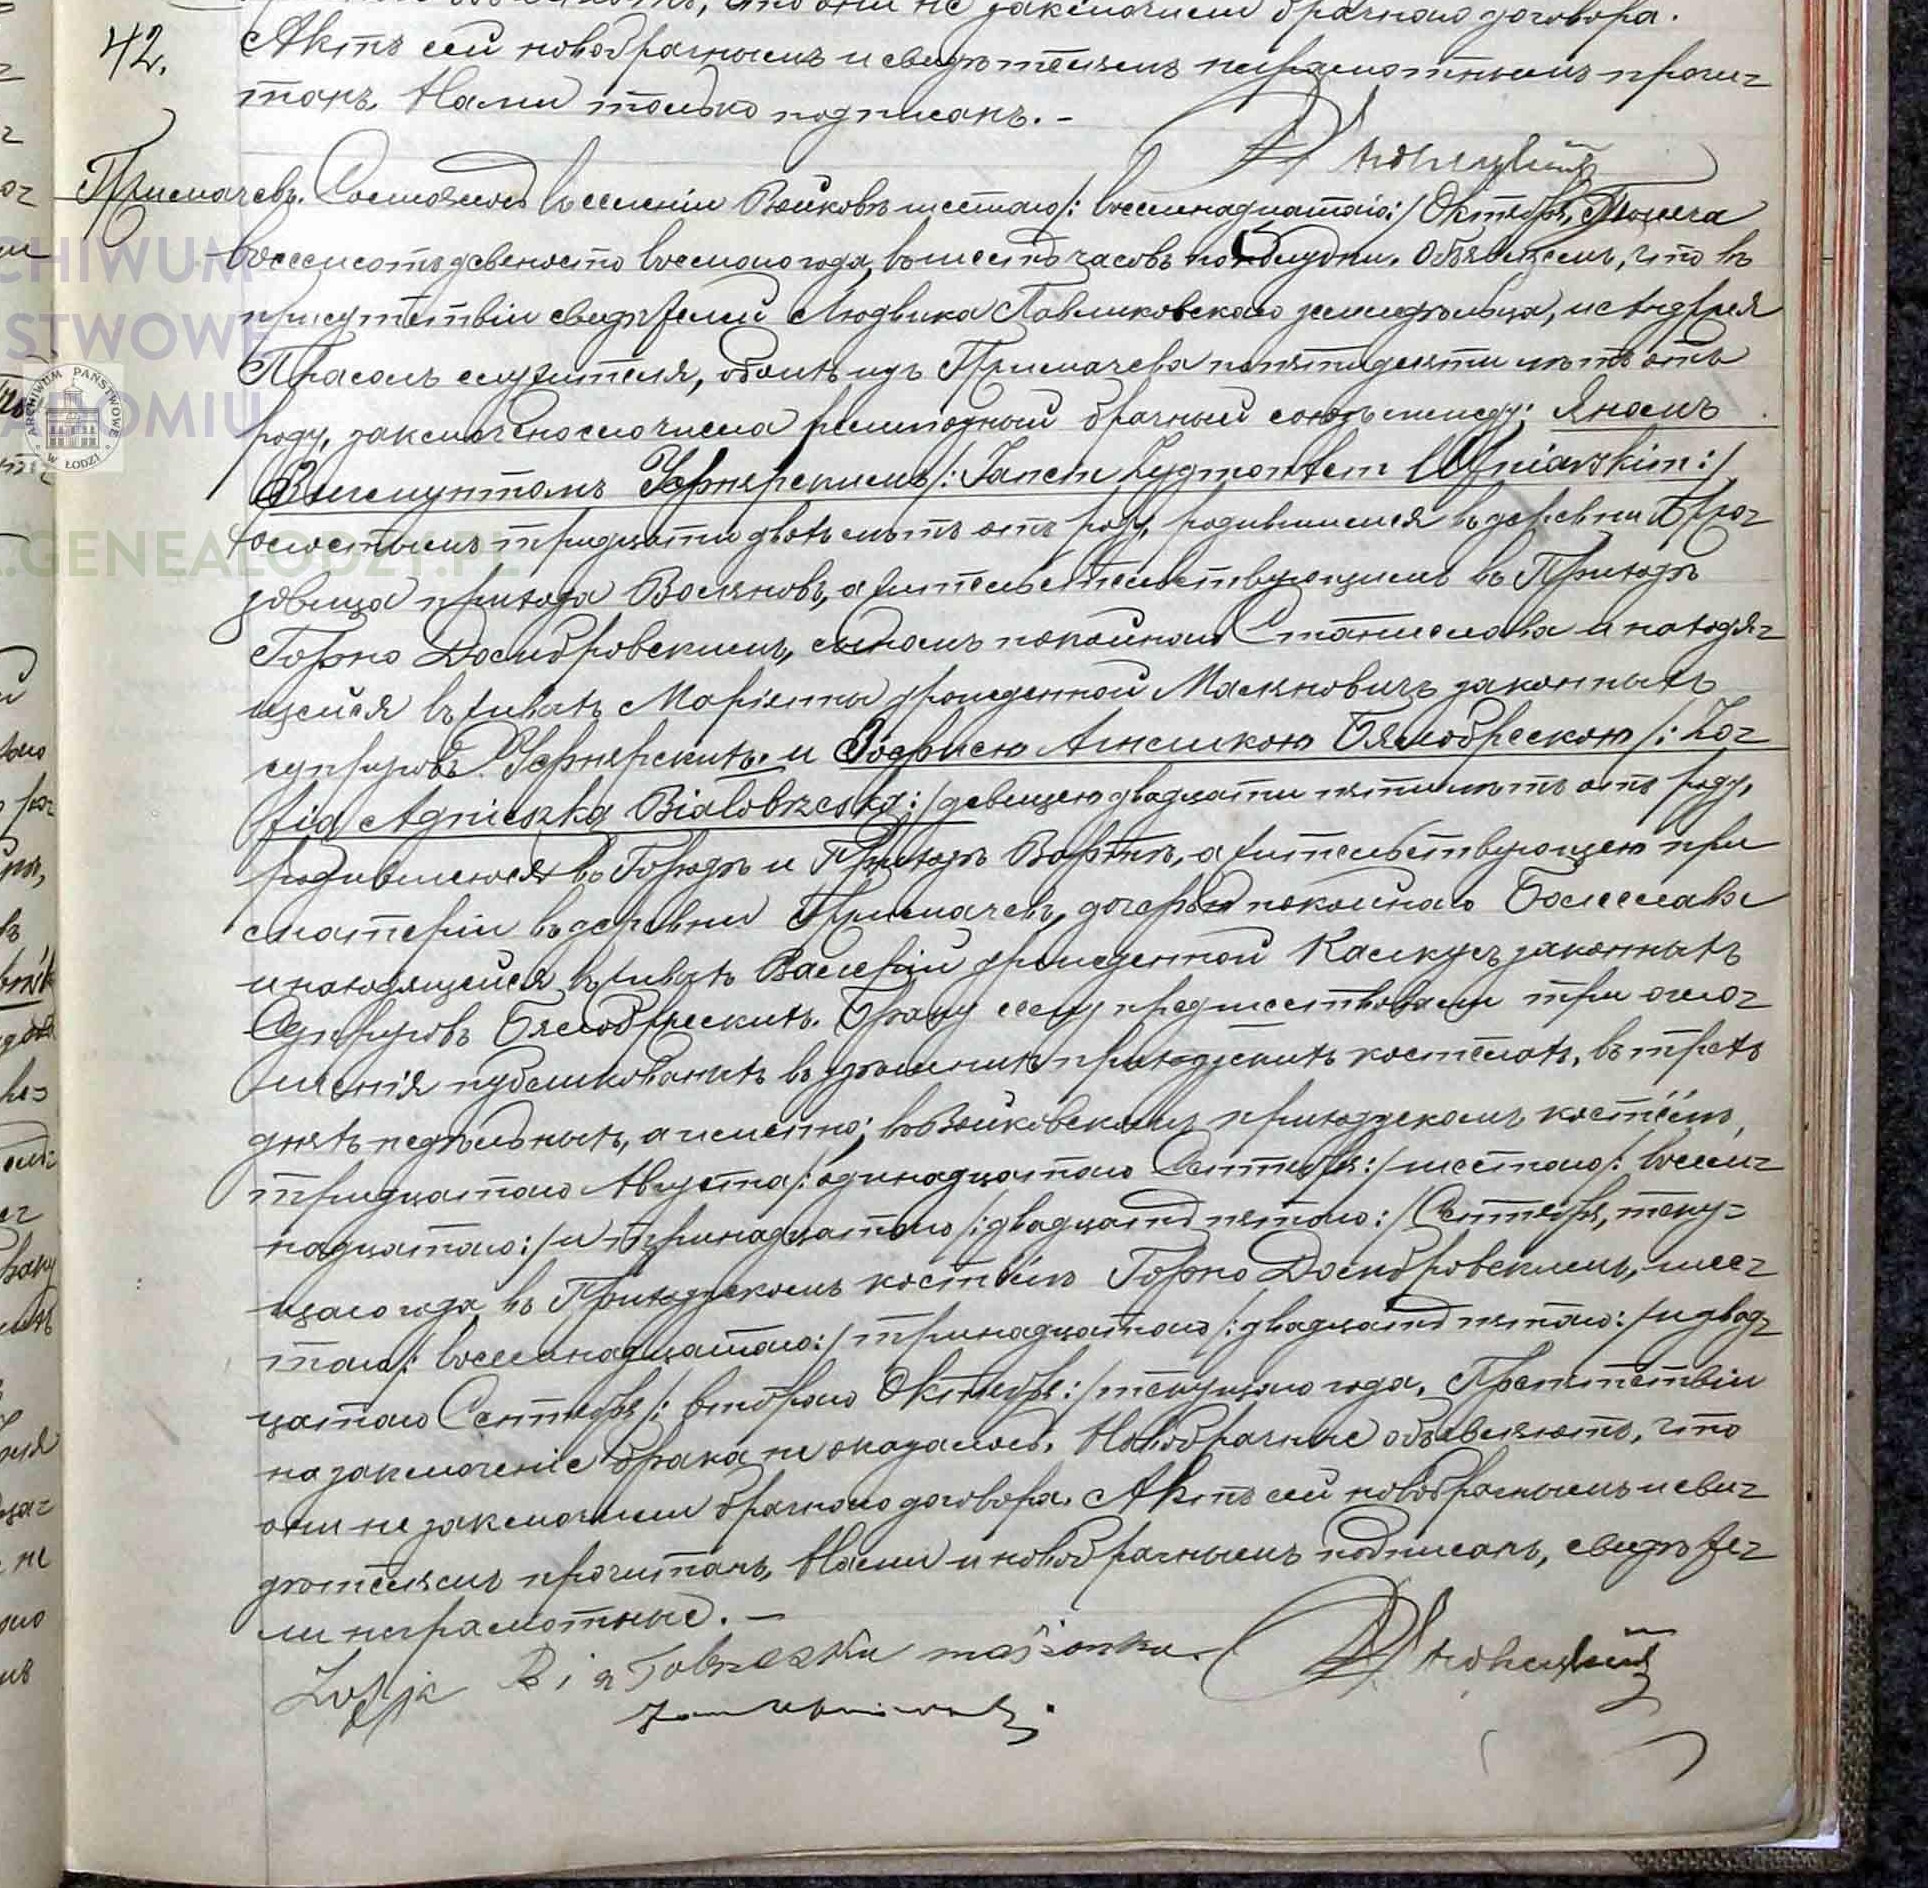 они не заключили брачнаго договора.
42.
Актъ сей новобрачнымъ и свидѣтелямъ неграмотнымъ прочи-
танъ, Нами только подписанъ. -
Примачевъ. Состоялось въ селеніи Войковѣ шестаго /: восемнадцатаго :/ Октября, Тысяча
восемсотъ девеносто восьмаго года, въ шесть часовъ пополудни. Объявляемъ, что въ
присутствіи свидѣтелей Людвика Павликовскаго земледѣльца, и Андрея
служителя, обоихъ изъ Примачева по пятидесяти лѣтъ отъ
роду, заключенъ сего числа религіозный брачный союзъ между: Яномъ
Зигмунтомъ /: Janem Zygmontem :/
холостымъ тридцати двухъ лѣтъ отъ роду, родившимся въ деревни Бро-
зовица прихода, а жительствующимъ въ Приходѣ
Горно Домбровскимъ, сыномъ покойнаго Станислава и находя-
щейся въ живыхъ Маріянны урожденной законныхъ
супруговъ и Зофіею Агнешкою Бялобрескою /: Zo-
fią Agnieszką Białobrzeską :/ девицею двадцати пяти лѣтъ отъ роду,
родившеюся въ Городѣ и Приходѣ Вартѣ, а жительствующею при
матери въ деревни Примачевъ, дочерью покойнаго Болеслава
и находящейся въ живыхъ Валеріи урожденной законныхъ
Супруговъ Бялобрескихъ. Браку сему предшествовали три огло-
шенія публикованныхъ въ здѣшнихъ приходскихъ костёлахъ, въ трехъ
дняхъ недѣльныхъ, а именно; въ Войковскимъ приходскомъ костёлѣ,
тридцатаго Августа /: одинадцатаго Сентября :/ шестаго /: восем-
надцатаго :/ и тринадцатаго /: двадцать пятаго :/ Сентября, теку-
щаго года, въ Приходскомъ костёлѣ Горно Домбровскимъ, шес-
таго /: восемнадцатаго :/ тринадцатаго /: двадцать пятаго :/ и двад-
цатаго Сентября /: втораго Октября :/ текущаго года. Препятствіи
на заключеніе брака не оказалось. Новобрачные объявляютъ, что
они не заключили брачнаго договора. Актъ сей новобрачнымъ и сви-
дѣтелямъ прочитанъ, Нами и новобрачнымъ подписанъ, свидѣте-
ли неграмотные. -
Zofja Białobrzeska małżonka.
Jan
ARCHIWUM PAŃSTWOWE W ŁODZI
GENEALODZY.PL